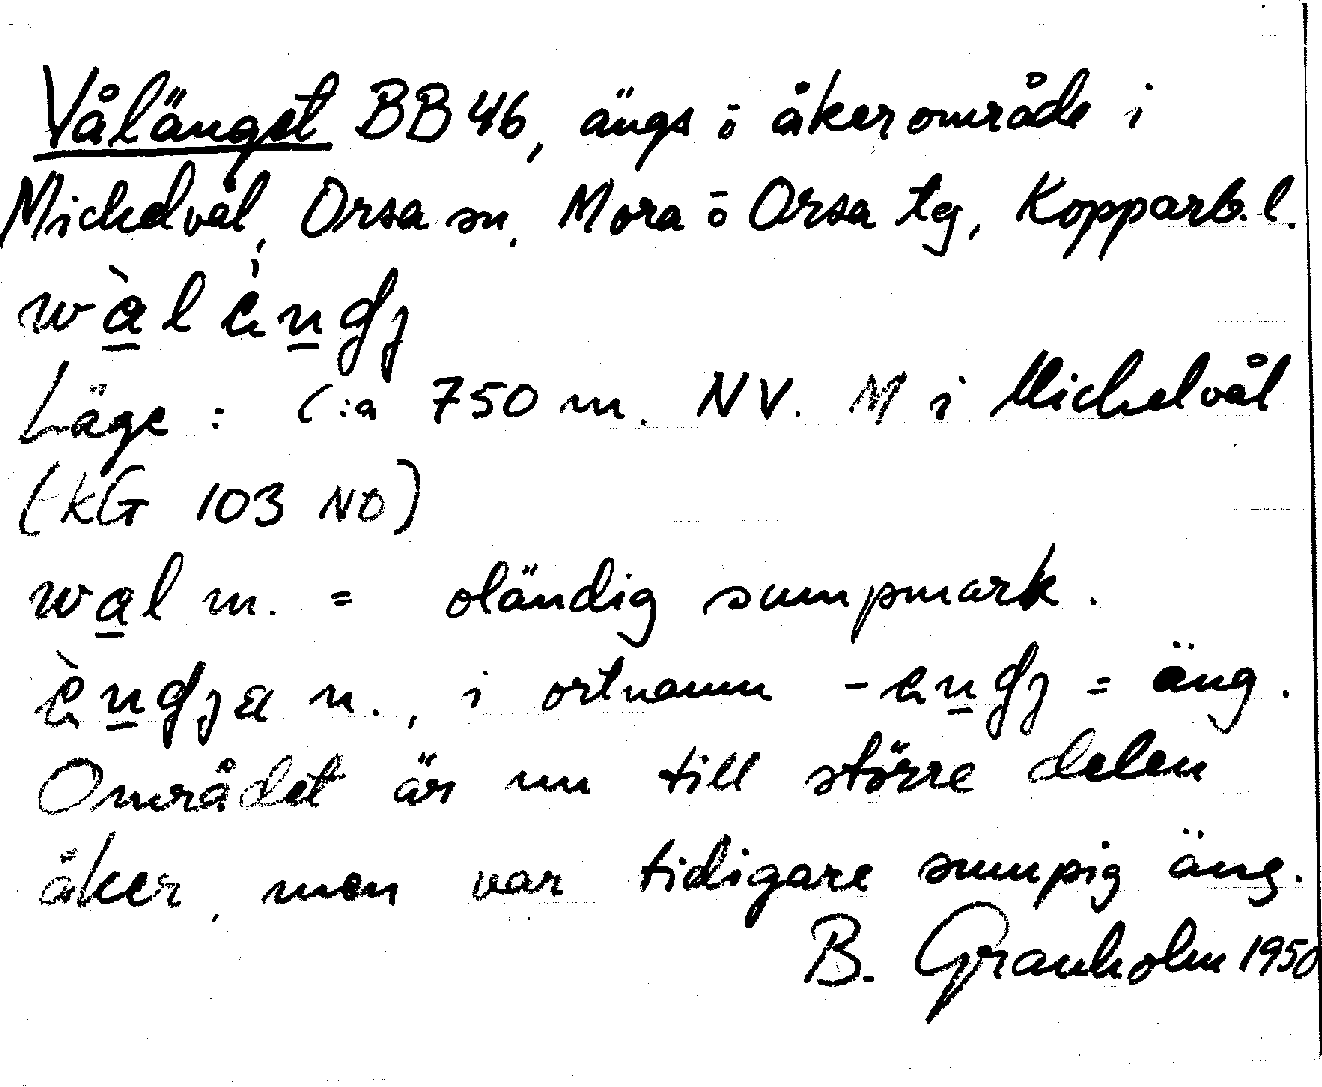 Vålänget BB 46, ängs ō åkerområde i
Mickelvål, Orsa sn. Mora ō Orsa tg, Kopparb. l.
Läge : C:a 750 m. NV. M i Mickelvål
(kG 103 NO)
wa̲l m. = oländig sumpmark.
n., i ortnamn = äng.
Området är nu till större delen
åker, men var tidigare sumpig äng.
B. Granholm 1950